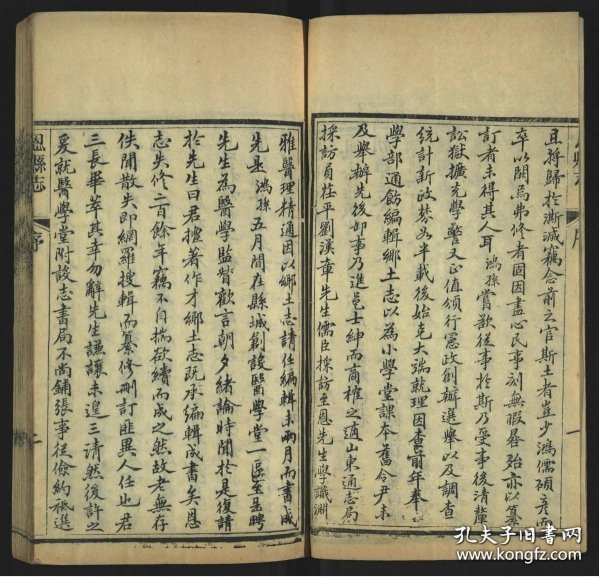 且將歸於澌滅竊念前之官斯土者豈少鴻儒碩彥而
卒以闕焉弗修者固因盡心民事刻無暇晷殆亦以纂
訂者未得其人耳鴻孫嘗欲從事於斯乃受事後清釐
訟獄擴充學警又正值頒行憲政創辦選舉以及調查
統計新政棼如半載後始克大端就理因查前年奉
學部通飭編輯鄉土志以為小學堂課本舊令尹未
及舉辦先後卸事乃進邑士紳而商榷之適山東通志局
採訪員茌平劉漢章先生儒臣採訪至恩先生學識淵
一
雅醫理精通因以鄉土志請任編輯未兩月而書成
先是鴻孫五月間在縣城創設醫學堂一區至是聘
先生為醫學監習歡言朝夕緒論時聞於是復請
於先生曰君擅著作才鄉土志既承編輯成書矣恩
志失修二百餘年竊不自揣欲續而成之然故老無存
佚聞散失即網羅搜輯而纂修刪訂匪異人任也君
三長畢萃其幸勿辭先生謙讓未遑三請然後許之
爰就醫學堂附設志書局不尚鋪張事從儉約秪選
恩縣志
序
二
孔夫子旧书网
www.kongfz.com